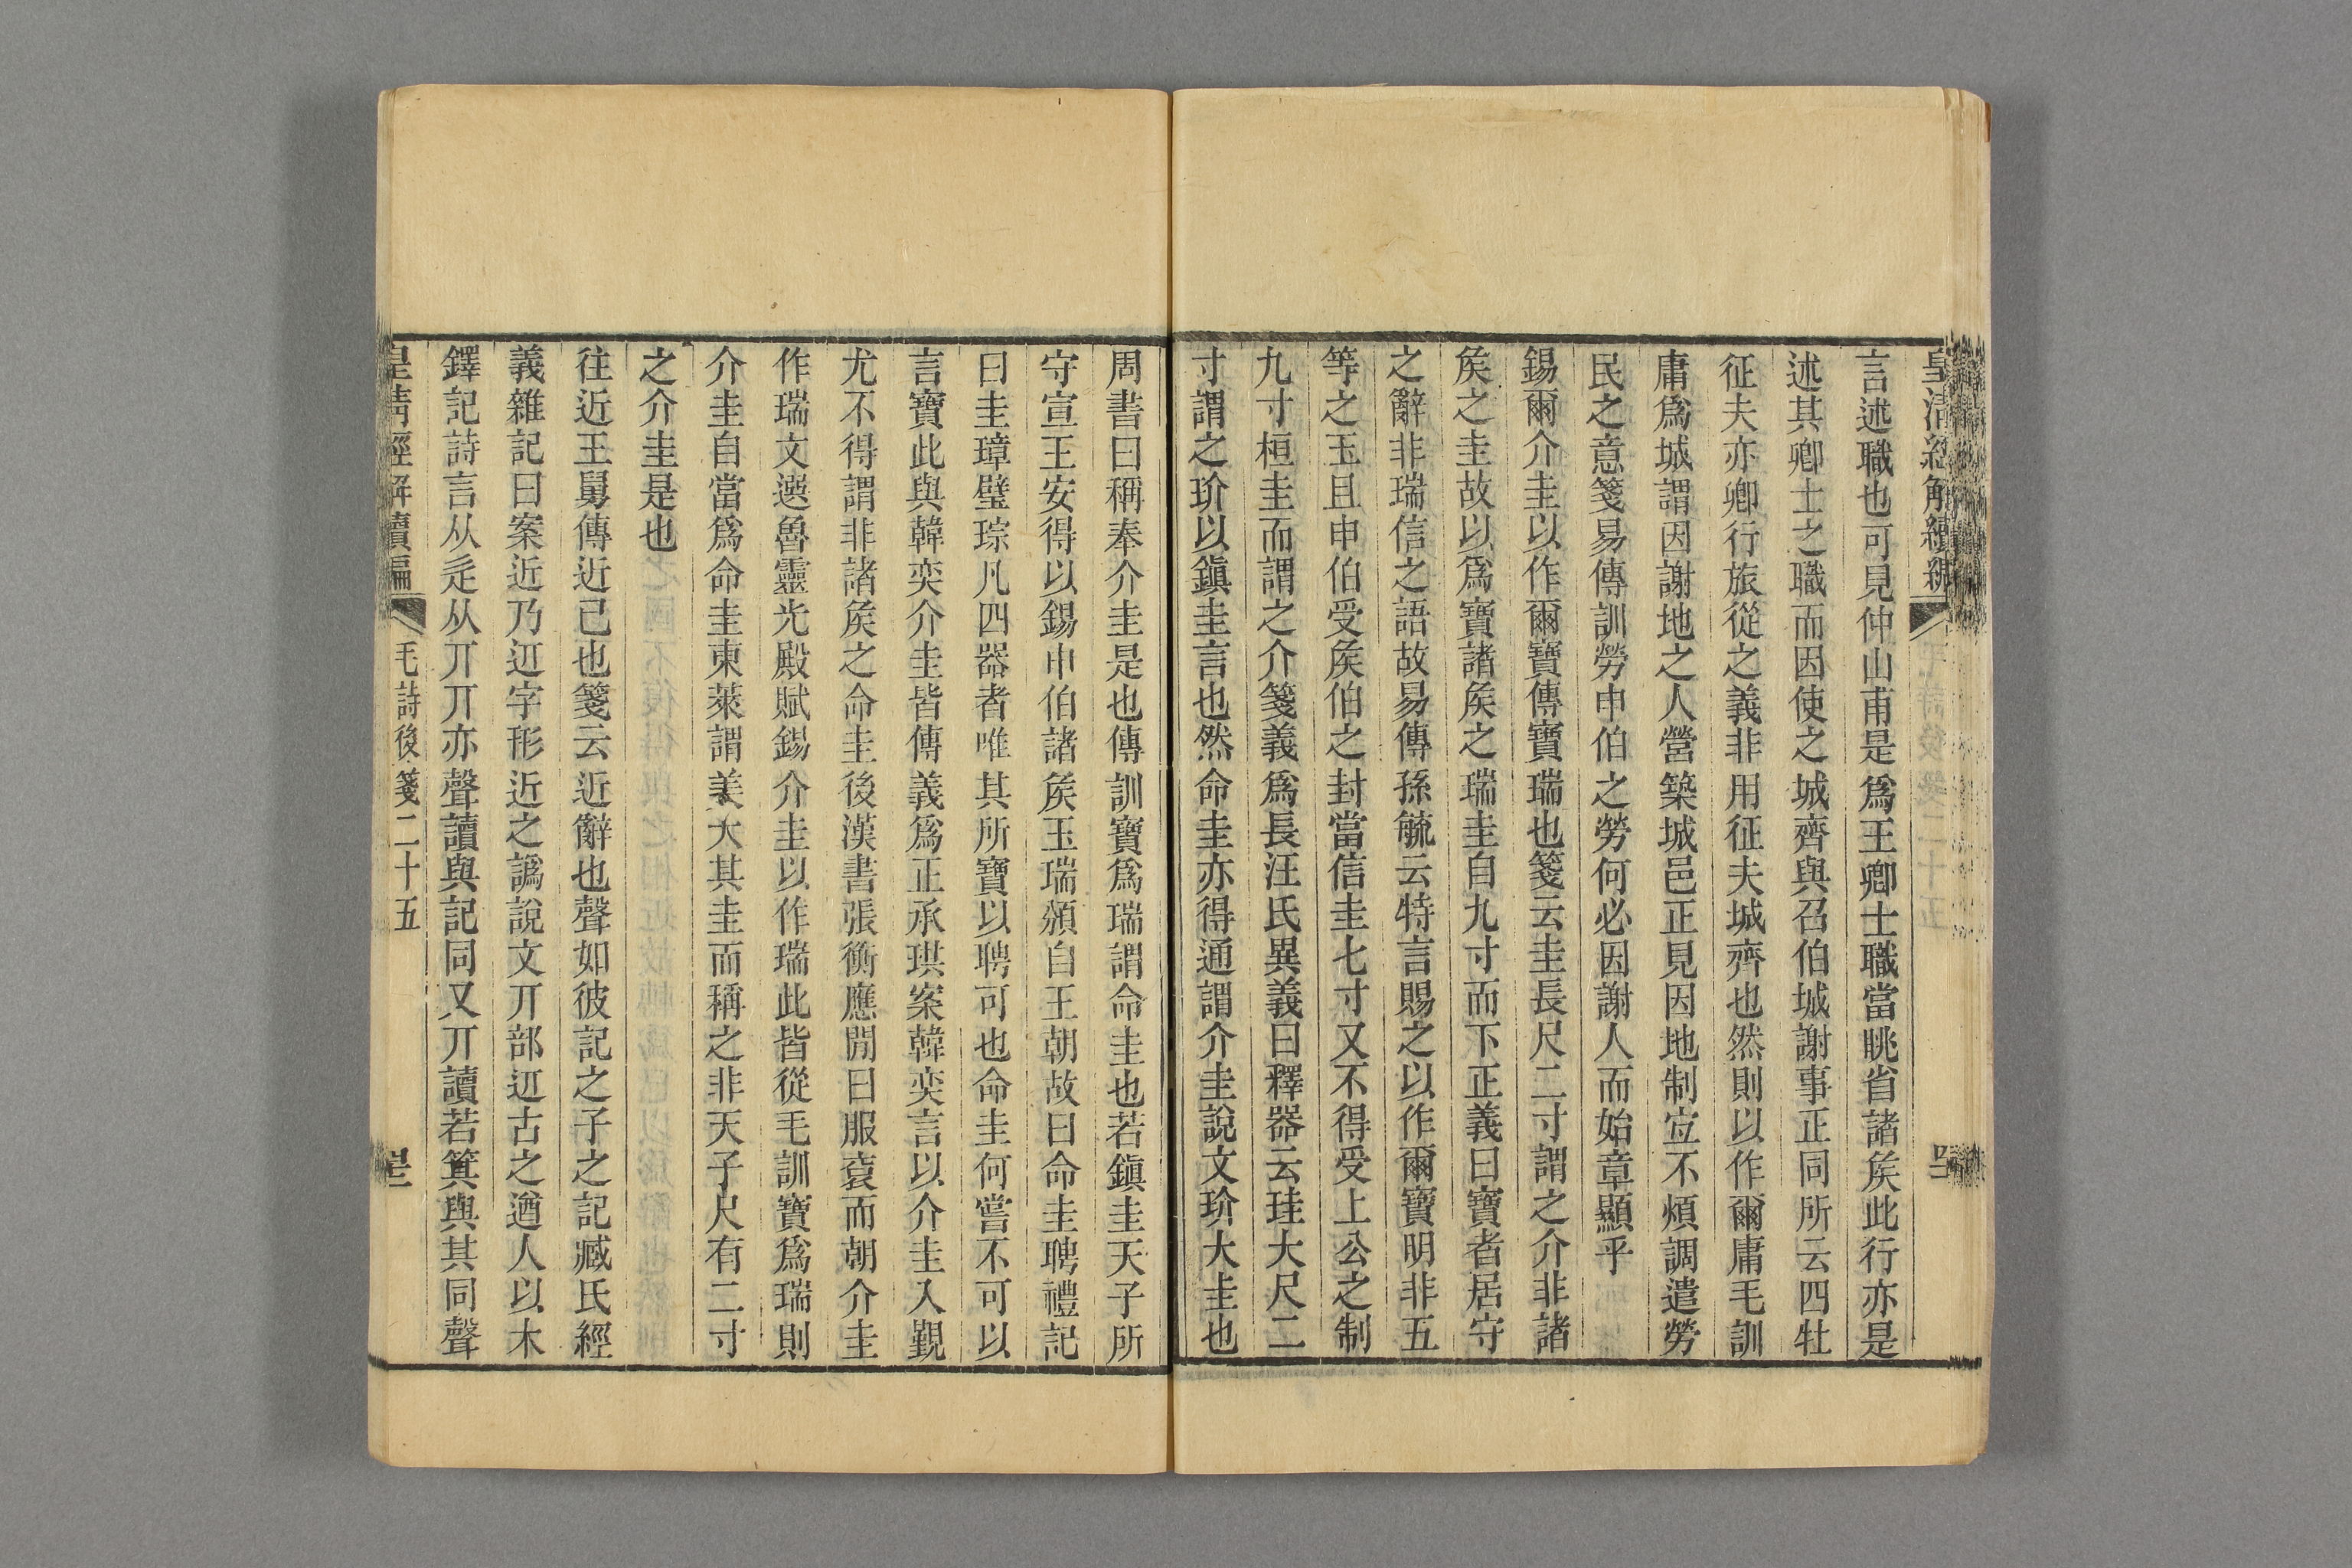 皇清經解續編
言述職也可見仲山甫是爲王卿士職當眺省諸矦此行亦是
述其卿士之職而因使之城齊與召伯城謝事正同所云四牡
征夫亦卿行旅從之義非用征夫城齊也然則以作爾庸毛訓
庸爲城謂因謝地之人營築城邑正見因地制宐不煩調遣勞
民之意箋易傳訓勞申伯之勞何必因謝人而始章顯乎
錫爾介圭以作爾寶傳寶瑞也箋云圭長尺二寸謂之介非諸
矦之圭故以爲寶諸矦之瑞圭自九寸而下正義曰寶者居守
之辭非瑞信之語故易傳孫毓云特言賜之以作爾寶明非五
等之玉且申伯受矦伯之封當信圭七寸又不得受上公之制
九寸桓圭而謂之介箋義爲長汪氏異義曰釋器云珪大尺二
寸謂之玠以鎭圭言也然命圭亦得通謂介圭說文玠大圭也
周書曰稱奉介圭是也傳訓寶爲瑞謂命圭也若鎭圭天子所
守宣王安得以錫申伯諸矦玉瑞頒自王朝故曰命圭聘禮記
曰圭璋璧琮凡四器者唯其所寶以聘可也命圭何嘗不可以
言寶此與韓奕介圭皆傳義爲正承珙案韓奕言以介圭入覲
尤不得謂非諸矦之命圭後漢書張衡應閒曰服袞而朝介圭
作瑞文選魯靈光殿賦錫介圭以作瑞此皆從毛訓寶爲瑞則
介圭自當爲命圭東萊謂美大其圭而稱之非天子尺有二寸
之介圭是也
往近王舅傳近己也箋云近辭也聲如彼記之子之記臧氏經
義雜記曰案近乃䢋字形近之譌說文丌部䢋古之遒人以木
鐸記詩言从辵从丌丌亦聲讀與記同又丌讀若箕與其同聲
皇清經解續編
毛詩後箋二十五